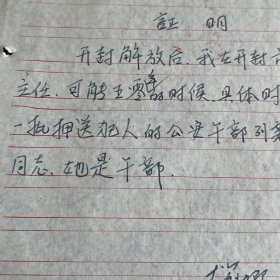 証明
开封解放后，我在开封
主任，可能五零年的时候，具体时
一批押送犯人的公安干部到
同志，她是干部．